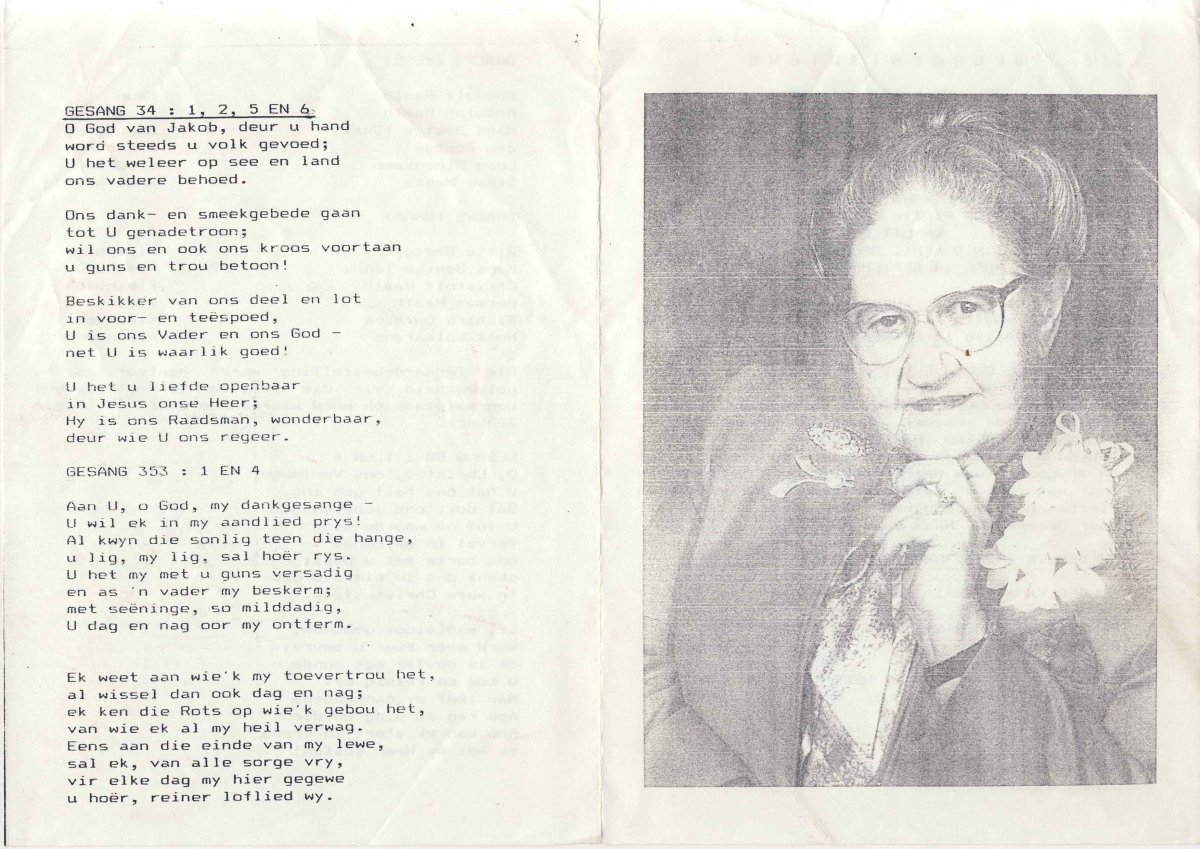 GESANG 34 : 1, 2, 5 EN 6
O God van Jakob, deur u hand
word steeds u volk gevoed;
U het weleer op see en land
ons vadere behoed.
Ons dank- en smeekgebede gaan
tot U genadetroon;
wil ons en ook ons kroos voortaan
u guns en trou betoon!
Beskikker van ons deel en lot
in voor- en teëspoed,
U is ons Vader en ons God -
net U is waarlik goed!
U het u liefde openbaar
in Jesus onse Heer;
Hy is ons Raadsman, wonderbaar,
deur wie U ons regeer.
GESANG 353 : 1 EN 4
Aan U, o God, my dankgesange -
U wil ek in my aandlied prys!
Al kwyn die sonlig teen die hange,
u lig, my lig, sal hoër rys.
U het my met u guns versadig
en as 'n vader my beskerm;
met seëninge, so milddadig,
U dag en nag oor my ontferm.
Ek weet aan wie'k my toevertrou het,
al wissel dan ook dag en nag;
ek ken die Rots op wie'k gebou het,
van wie ek al my heil verwag.
Eens aan die einde van my lewe,
sal ek, van alle sorge vry,
vir elke dag my hier gegewe
u hoër, reiner loflied wy.